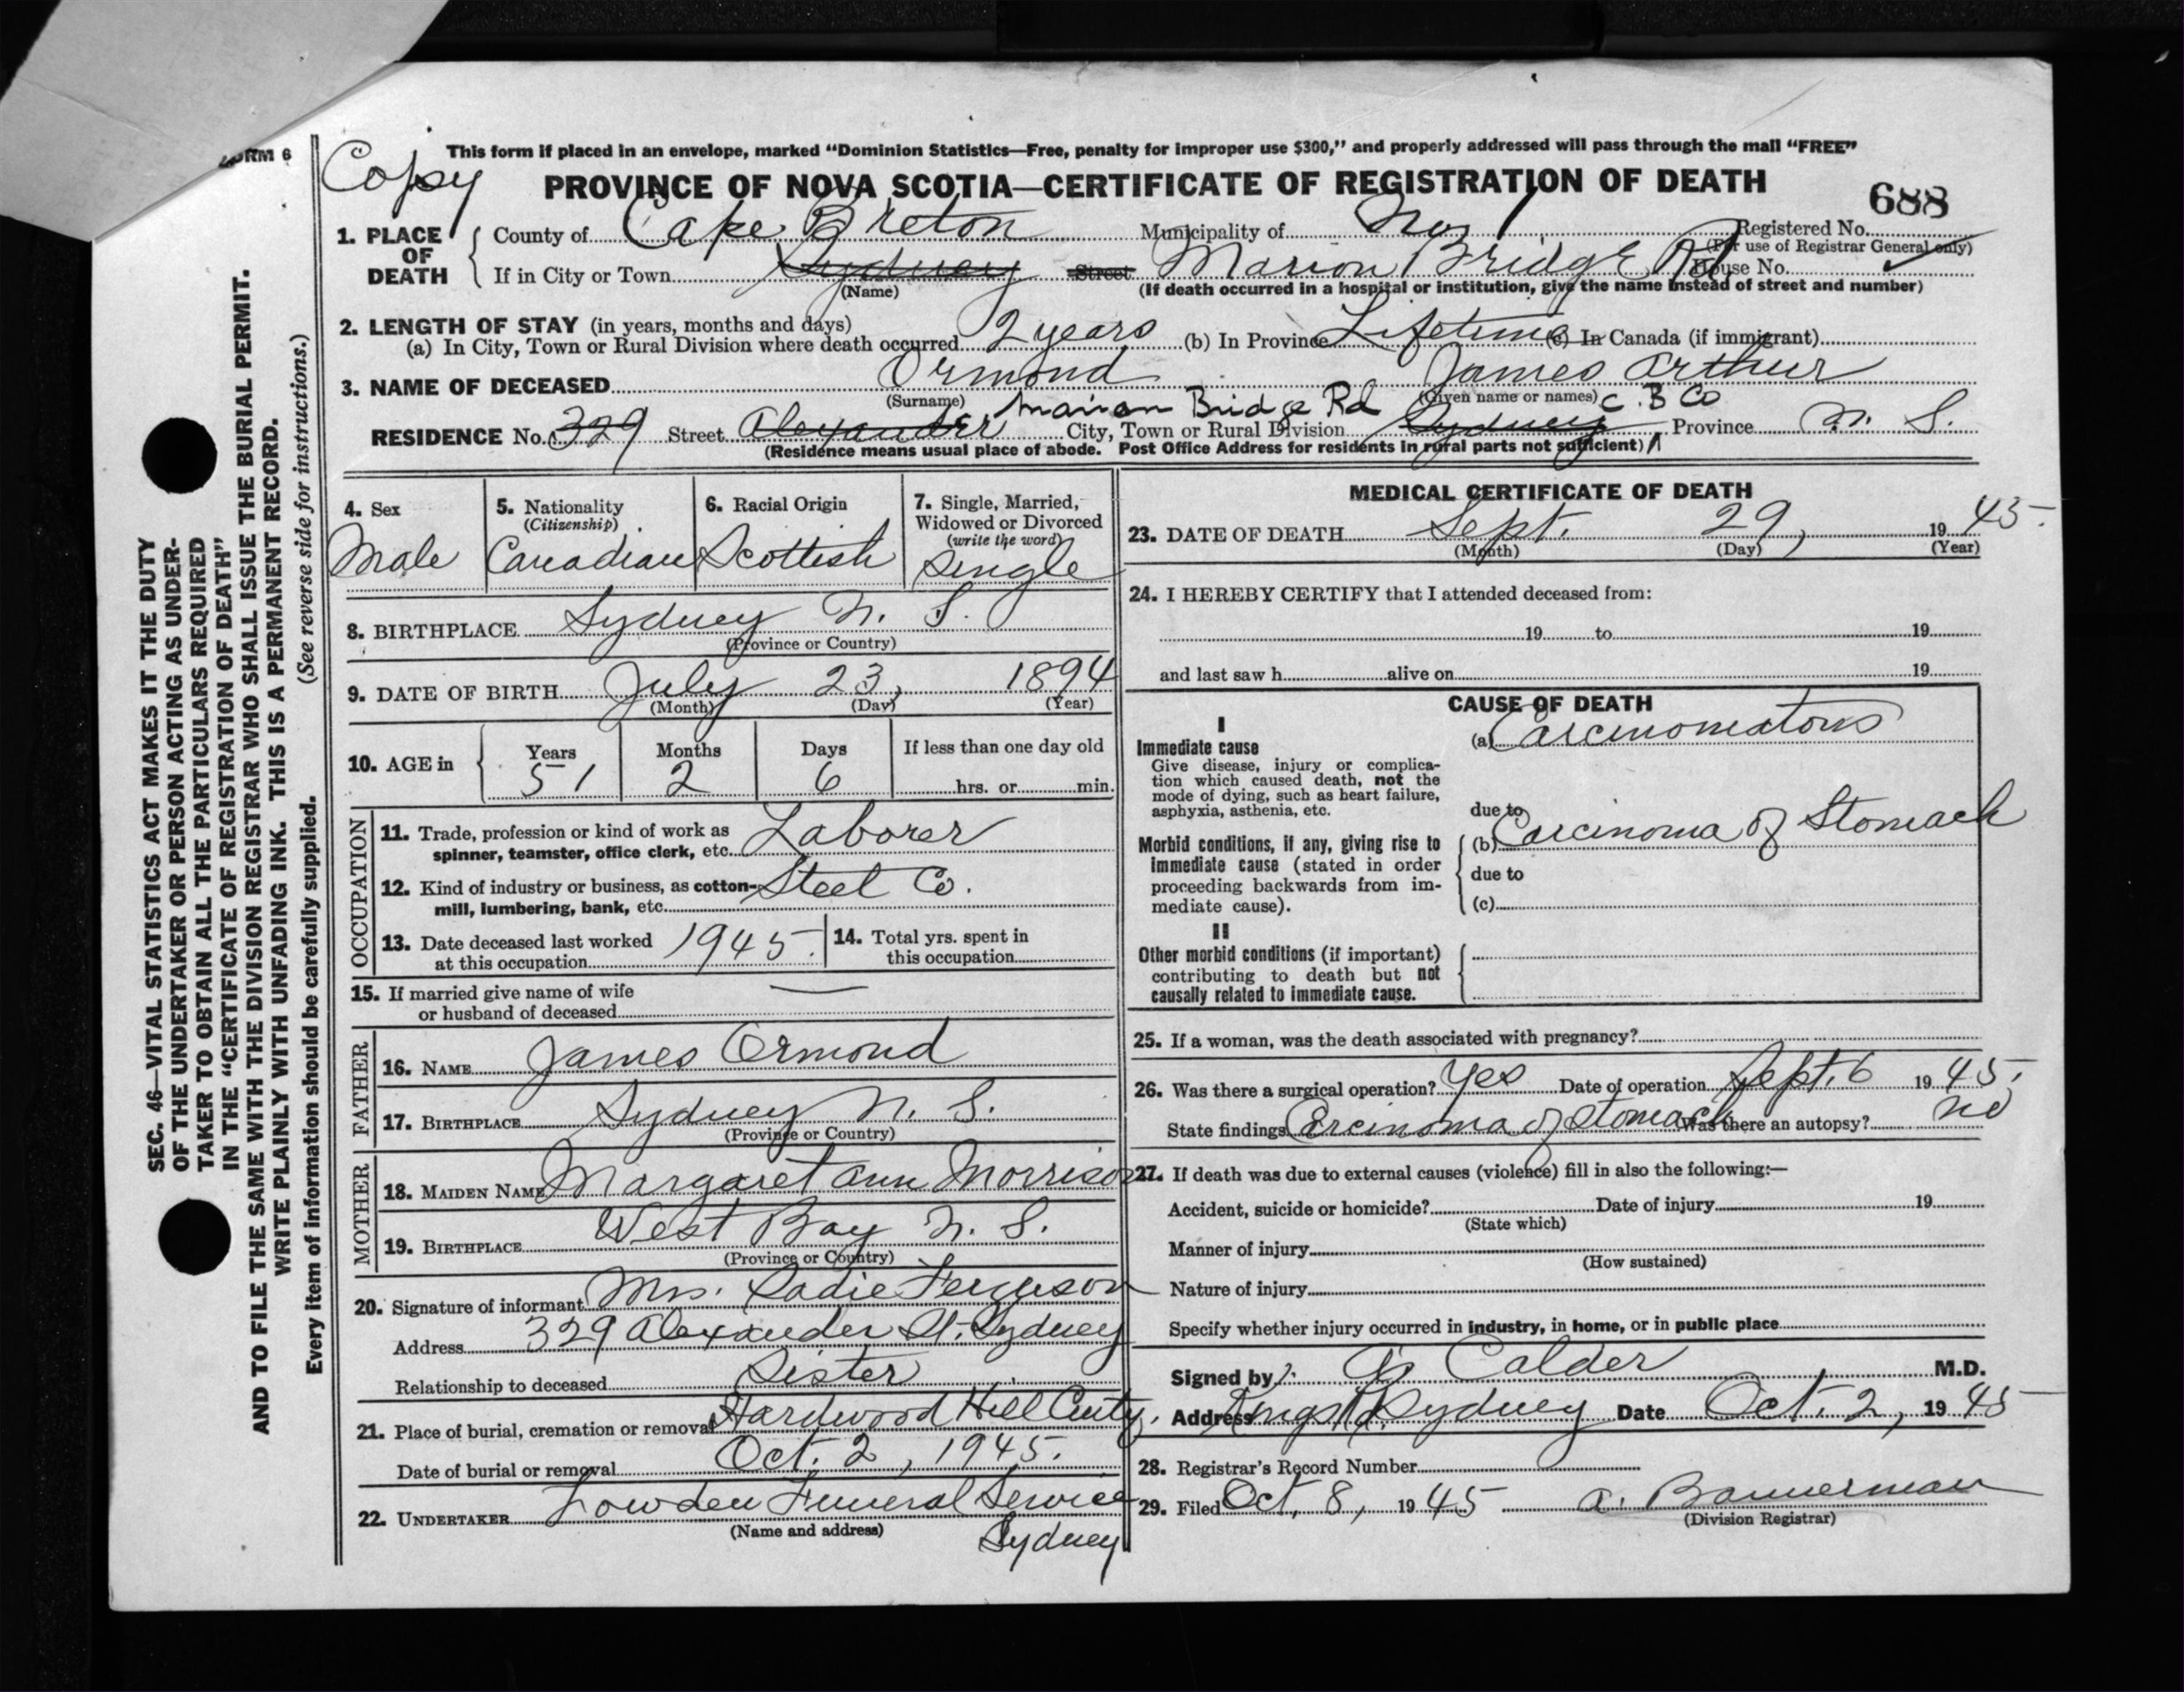 FORM 6
Copy
This form if placed in an envelope, marked “Dominion Statistics—Free, penalty for improper use $300,” and properly addressed will pass through the mail “FREE”
PROVINCE OF NOVA SCOTIA—CERTIFICATE OF REGISTRATION OF DEATH
688
1. PLACE OF DEATH County of Cape Breton Municipality of No 1 Registered No.
(For use of Registrar General only)
If in City or Town Sydney Street Marion Bridge Rd House No.
(Name) (If death occurred in a hospital or institution, give the name instead of street and number)
2. LENGTH OF STAY (in years, months and days)
(a) In City, Town or Rural Division where death occurred 2 years (b) In Province Lifetime (c) In Canada (if immigrant)
3. NAME OF DECEASED Ormond James Arthur
(Surname) (Given name or names)
Marion Bridge Rd C. B Co
RESIDENCE No. 329 Street Alexander City, Town or Rural Division Sydney Province N. S.
(Residence means usual place of abode. Post Office Address for residents in rural parts not sufficient)
4. Sex Male
5. Nationality (Citizenship) Canadian
6. Racial Origin Scottish
7. Single, Married, Widowed or Divorced (write the word) Single
8. BIRTHPLACE Sydney N. S.
(Province or Country)
9. DATE OF BIRTH July 23, 1894
(Month) (Day) (Year)
10. AGE in Years 51 Months 2 Days 6 If less than one day old hrs. or min.
OCCUPATION
11. Trade, profession or kind of work as spinner, teamster, office clerk, etc. Laborer
12. Kind of industry or business, as cotton-mill, lumbering, bank, etc. Steel Co.
13. Date deceased last worked at this occupation 1945.
14. Total yrs. spent in this occupation
15. If married give name of wife or husband of deceased —
FATHER
16. NAME James Ormond
17. BIRTHPLACE Sydney N. S.
(Province or Country)
MOTHER
18. MAIDEN NAME Margaret Ann Morrison
19. BIRTHPLACE West Bay N. S.
(Province or Country)
20. Signature of informant Mrs. Sadie Ferguson
Address 329 Alexander St. Sydney
Relationship to deceased Sister
21. Place of burial, cremation or removal Hardwood Hill Cmty.
Date of burial or removal Oct. 2, 1945.
22. UNDERTAKER Lowden Funeral Service
(Name and address) Sydney
MEDICAL CERTIFICATE OF DEATH
23. DATE OF DEATH Sept. 29, 1945.
(Month) (Day) (Year)
24. I HEREBY CERTIFY that I attended deceased from:
19 to 19
and last saw h alive on 19
CAUSE OF DEATH
I
Immediate cause
Give disease, injury or complica-
tion which caused death, not the
mode of dying, such as heart failure,
asphyxia, asthenia, etc.
(a) Carcinomatous
due to
Morbid conditions, if any, giving rise to
immediate cause (stated in order
proceeding backwards from im-
mediate cause).
(b) Carcinoma of Stomach
due to
(c)
II
Other morbid conditions (if important)
contributing to death but not
causally related to immediate cause.
25. If a woman, was the death associated with pregnancy?
26. Was there a surgical operation? Yes Date of operation Sept. 6 1945.
State findings Carcinoma of Stomach Was there an autopsy? no
27. If death was due to external causes (violence) fill in also the following:—
Accident, suicide or homicide? Date of injury 19
(State which)
Manner of injury
(How sustained)
Nature of injury
Specify whether injury occurred in industry, in home, or in public place
Signed by Calder M.D.
Address Kings Rd Sydney Date Oct. 2, 1945
28. Registrar's Record Number
29. Filed Oct. 8, 1945 A. Bannerman
(Division Registrar)
SEC. 46—VITAL STATISTICS ACT MAKES IT THE DUTY
OF THE UNDERTAKER OR PERSON ACTING AS UNDER-
TAKER TO OBTAIN ALL THE PARTICULARS REQUIRED
IN THE “CERTIFICATE OF REGISTRATION OF DEATH”
AND TO FILE THE SAME WITH THE DIVISION REGISTRAR WHO SHALL ISSUE THE BURIAL PERMIT.
WRITE PLAINLY WITH UNFADING INK. THIS IS A PERMANENT RECORD.
Every item of information should be carefully supplied. (See reverse side for instructions.)